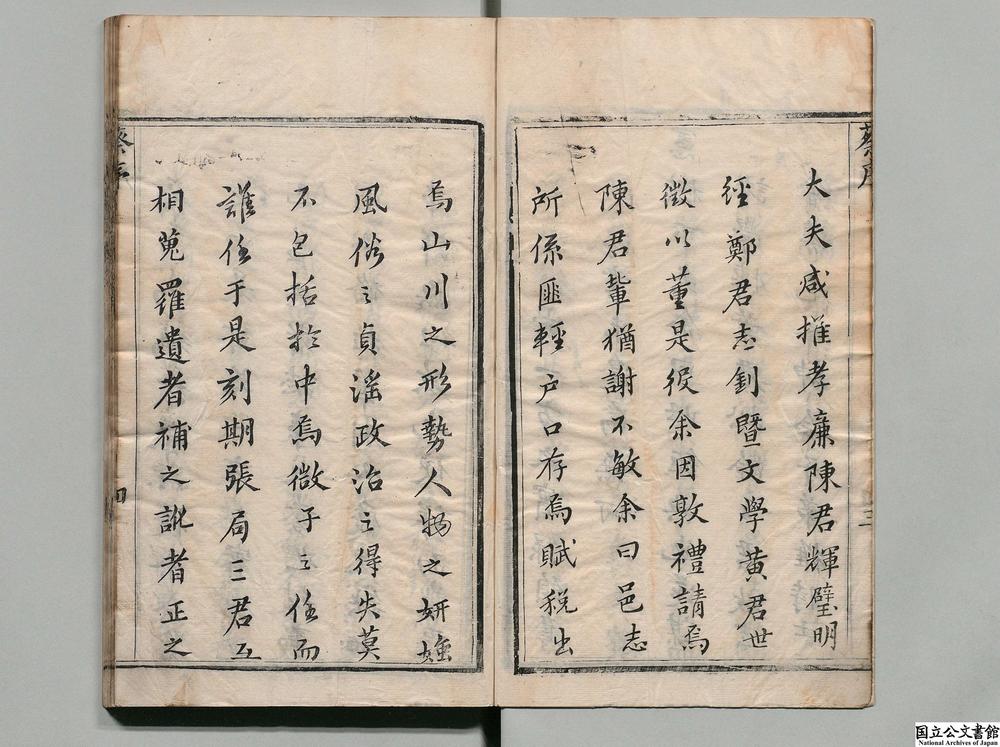 大夫咸推孝廉陳君輝璧明
經鄭君志釗暨文學黄君世
徵以董是役余因敦禮請焉
陳君輩猶謝不敏余曰邑志
所係匪輕户口存焉賦税出
焉山川之形勢人物之妍媸
風俗之貞滛政治之得失莫
不包括於中焉微子之任而
誰任于是刻期張局三君互
相蒐羅遺者補之訛者正之
蔡序
三
蔡序
四
国立公文書館
National Archives of Japan